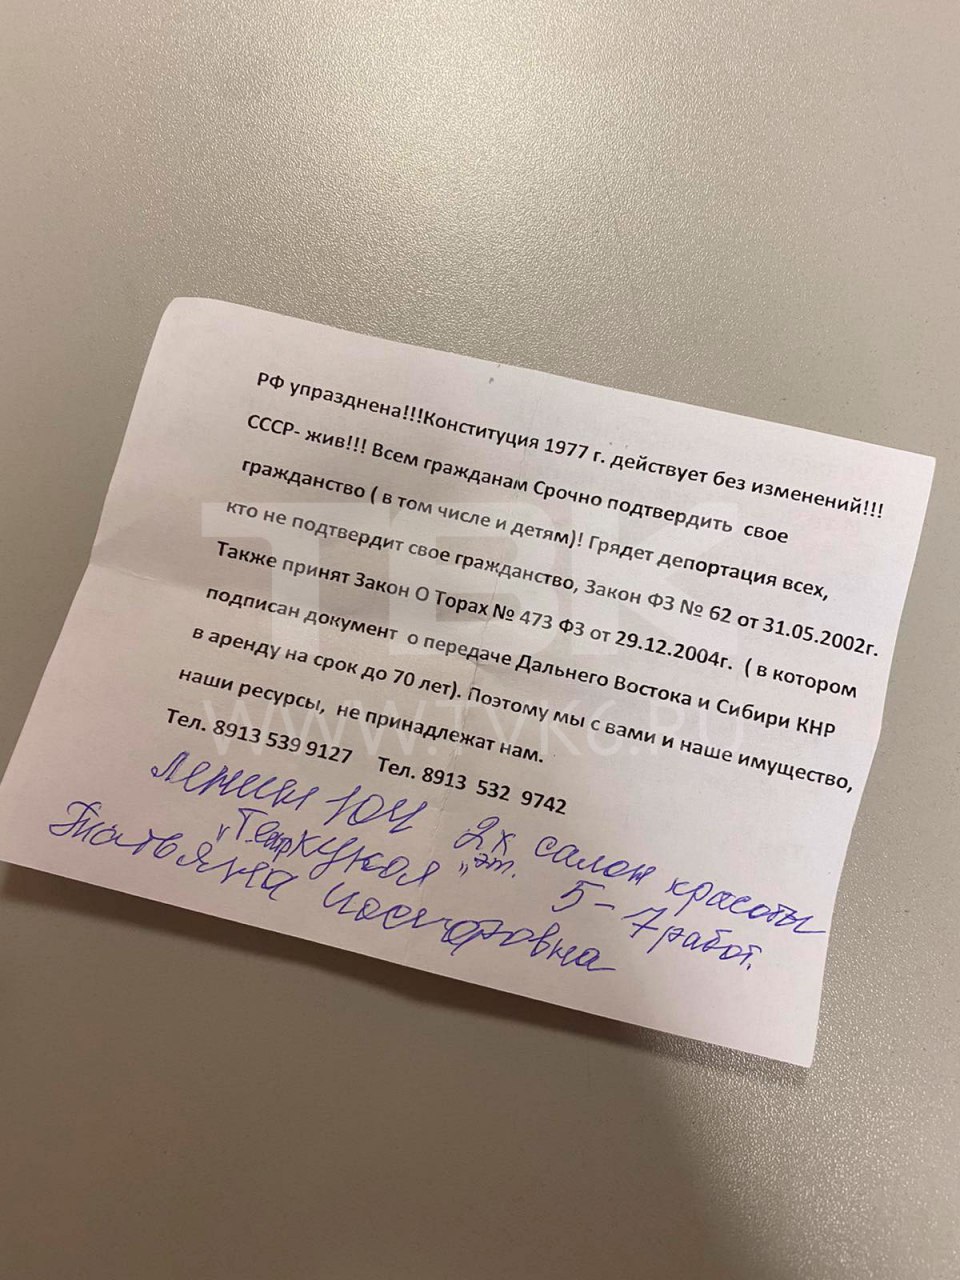 РФ упразднена!!!Конституция 1977 г. действует без изменений!!!
СССР- жив!!! Всем гражданам Срочно подтвердить свое
гражданство ( в том числе и детям)! Грядет депортация всех,
кто не подтвердит свое гражданство, Закон ФЗ № 62 от 31.05.2002г.
Также принят Закон О Торах № 473 ФЗ от 29.12.2004г. ( в котором
подписан документ о передаче Дальнего Востока и Сибири КНР
в аренду на срок до 70 лет). Поэтому мы с вами и наше имущество,
наши ресурсы, не принадлежат нам.
Тел. 8913 539 9127 Тел. 8913 532 9742
Ленин 104 2х эт. салон красоты
5-7 работ.
Татьяна
ТВК
WWW.TVK6.RU